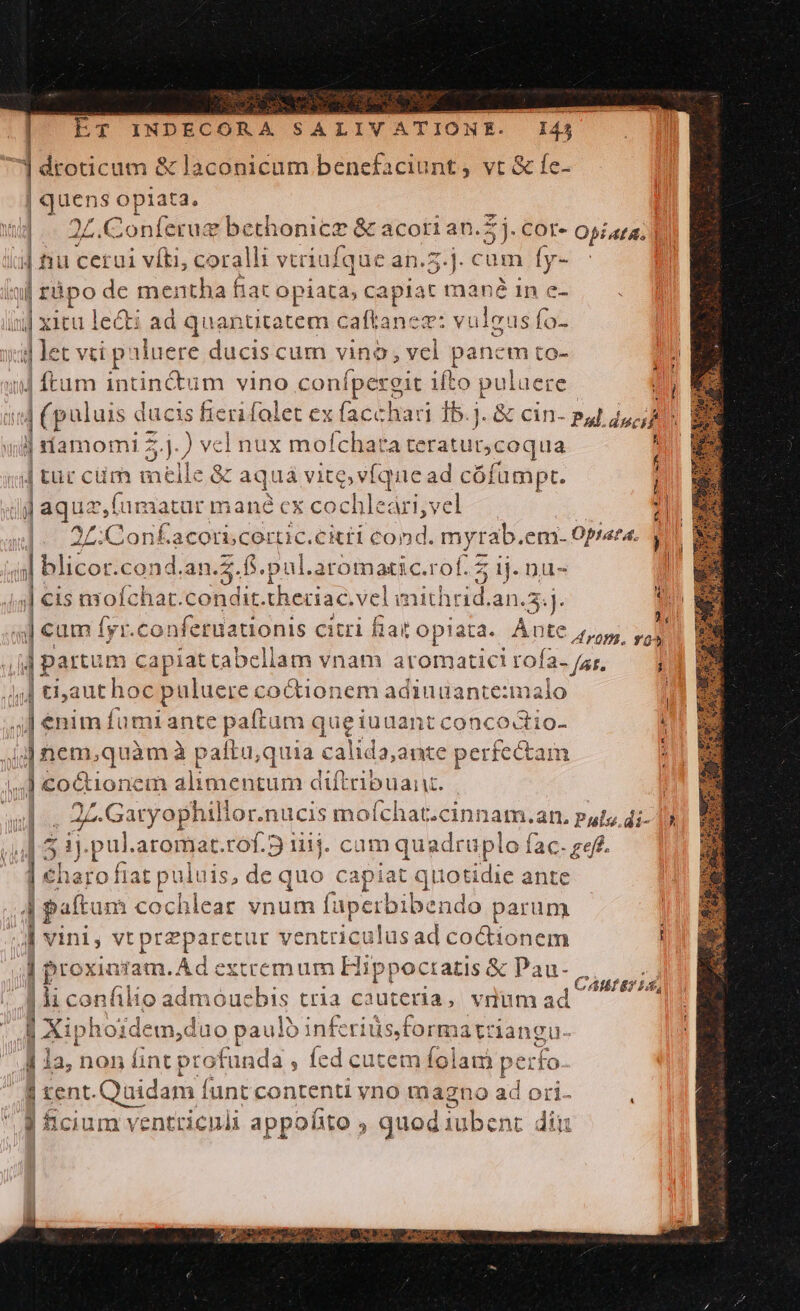 ET INDECORA SALIVATIONE. 143
droticum & laconicum benefaciunt, vt & ſe-
quens opiata.
♃.Conſeruæ bethonicæ & acori an.℥j. cor- Opiata.
nu cerui vſti, coralli vtriuſque an.ʒ.j. cum ſy-
rúpo de mentha fiat opiata, capiat manè in e-
xitu lecti ad quantitatem caſtaneæ: vulgus ſo-
let vti puluere ducis cum vino, vel panem to-
ſtum intinctum vino conſpergit iſto puluere
(puluis ducis fieri ſolet ex ſacchari ℔.j. & cin- Pul. ducis
namomi ℥.j.) vel nux moſchata teratur, coqua
tur cum melle & aqua vitę, vſque ad cõſumpt.
aquæ, ſumatur manè ex cochleari, vel
♃.Conſ.acori, cortic. citri cond. myrab. em- Opiata.
blicor. cond. an.℥.ß. pul. aromatic. roſ. ʒ ij. nu-
cis moſchat. condit. theriac. vel mithrid. an.ʒ.j.
cum ſyr. conſeruationis citri fiat opiata. Ante Arom. ros
partum capiat tabellam vnam aromatici roſa- ſat.
ti, aut hoc puluere coctionem adiuuante: malo
enim ſumi ante paſtum quę iuuant concoctio-
nem, quàm à paſtu, quia calida, ante perfectam
coctionem alimentum diſtribuant.
♃.Garyophillor. nucis moſchat. cinnam. an. Puls. di-
ʒ ij. pul. aromat. roſ.℈ iiij. cum quadruplo ſac- geſt.
charo fiat puluis, de quo capiat quotidie ante
paſtum cochlear vnum ſuperbibendo parum
vini, vt præparetur ventriculus ad coctionem
proximam. Ad extremum Hippocratis & Pau-
li conſilio admouebis tria cauteria, vnum ad Cauteria,
Xiphoidem, duo paulò inferiùs, forma triangu-
la, non ſint profunda, ſed cutem ſolam perfo-
rent. Quidam ſunt contenti vno magno ad ori-
ficium ventriculi appoſito, quod iubent diu